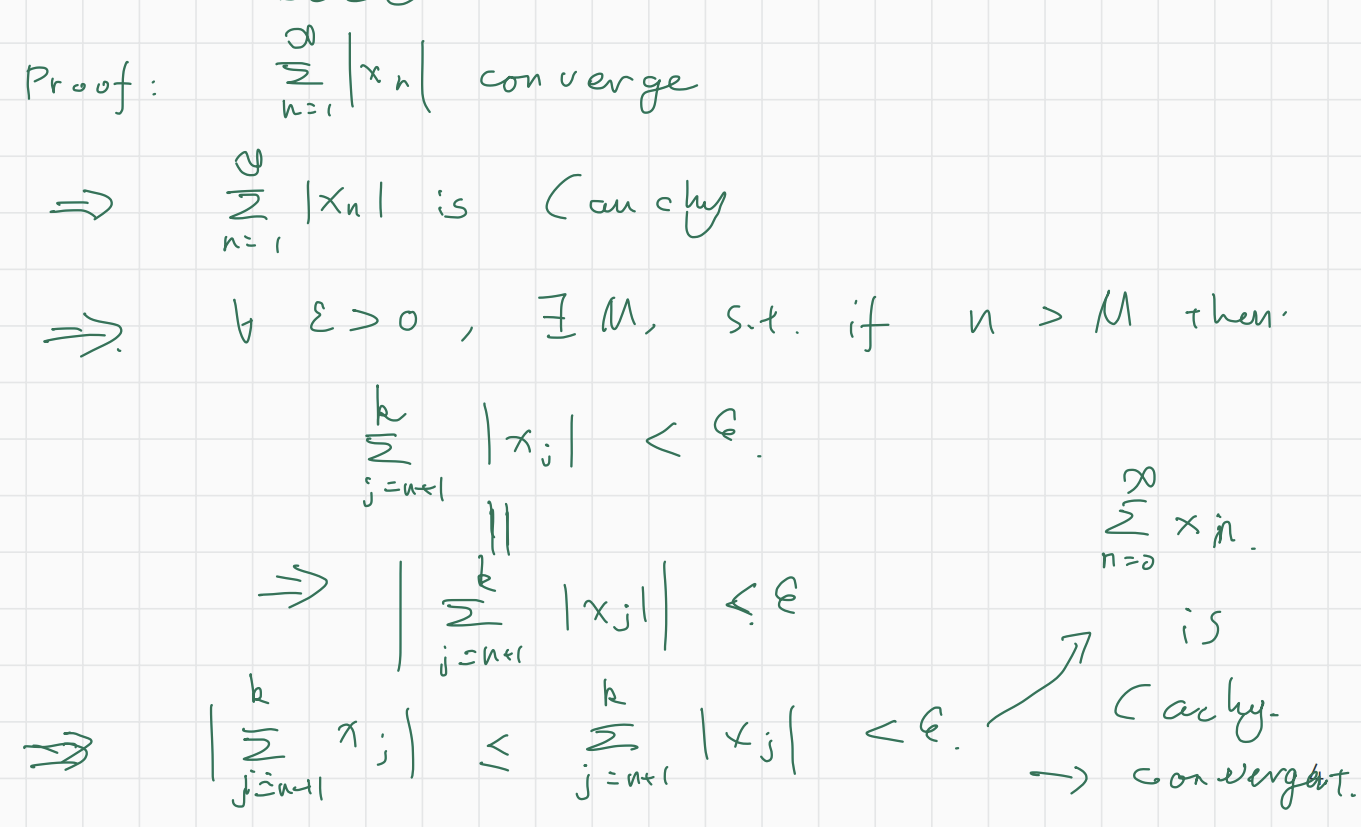 Proof: \sum_{n=1}^{\infty} |x_n| converge
⇒ \sum_{n=1}^{\infty} |x_n| is Cauchy
⇒ ∀ ε > 0, ∃ M, s.t. if n > M then.
\sum_{j=n+1}^{k} |x_j| < ε.
||
⇒ | \sum_{j=n+1}^{k} |x_j| | < ε
⇒ | \sum_{j=n+1}^{k} x_j | ≤ \sum_{j=n+1}^{k} |x_j| < ε.
\sum_{n=0}^{\infty} x_n.
is
Cachy.
→ convergent.